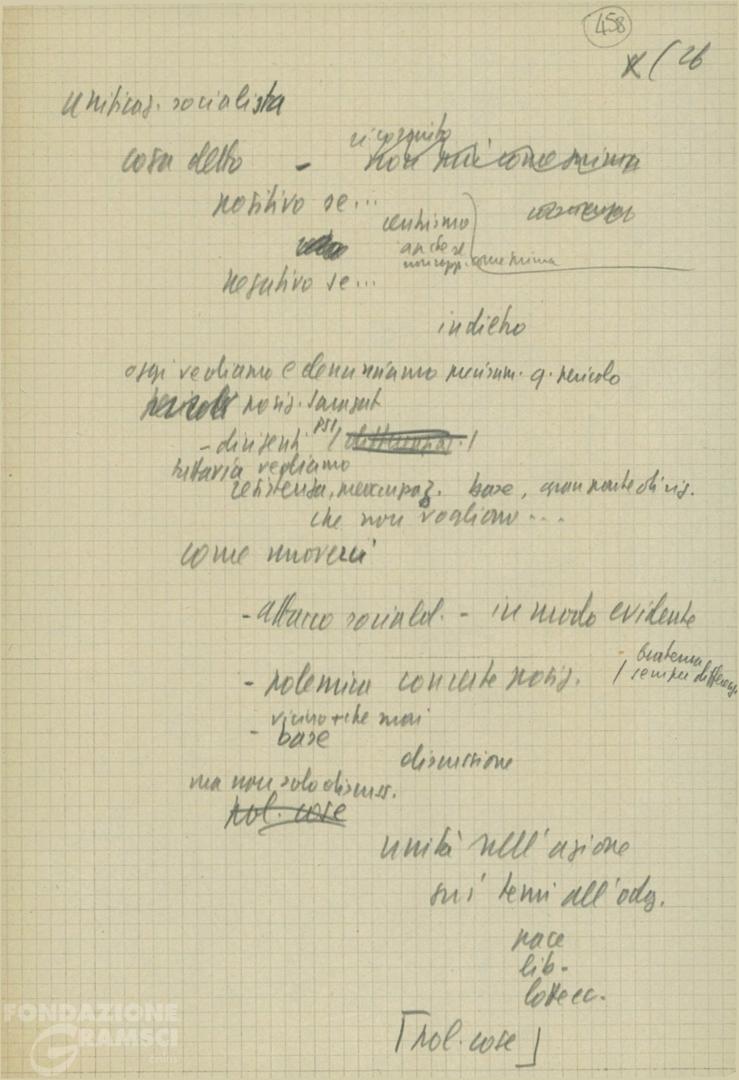 458
X / 26
unificaz. socialista
cosa detto -
non più come prima
positivo se...
centrismo
anche se
non rapp. come prima
negativo se...
indietro
oggi vediamo e denunciamo q. pericolo
pericolo posiz. Saragat
- dirigenti PSI /
tuttavia vediamo
resistenza, preoccupaz. base, gran parte di
che non vogliono...
come muoverci
- attacco sociald. - in modo evidente
- polemica concrete posiz. / fraterna
sempre differenz
vicino + che mai
- base
discussione
ma non solo discuss.
pol. cose
unità nell'azione
sui temi all'odg.
pace
lib.
lotte ec.
[pol. cose]
FONDAZIONE
GRAMSCI